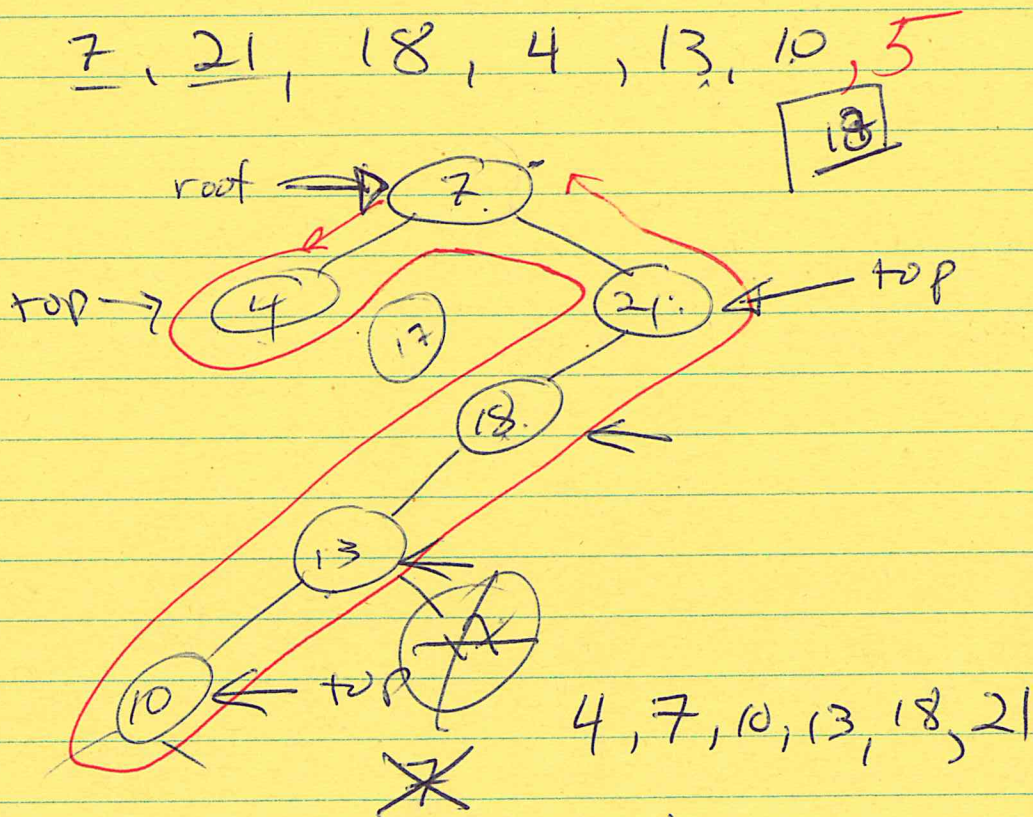 7, 21, 18, 4, 13, 10, 5
18
root 7
top 4 17 21 top
18
13
10 top
4, 7, 10, 13, 18, 21
7